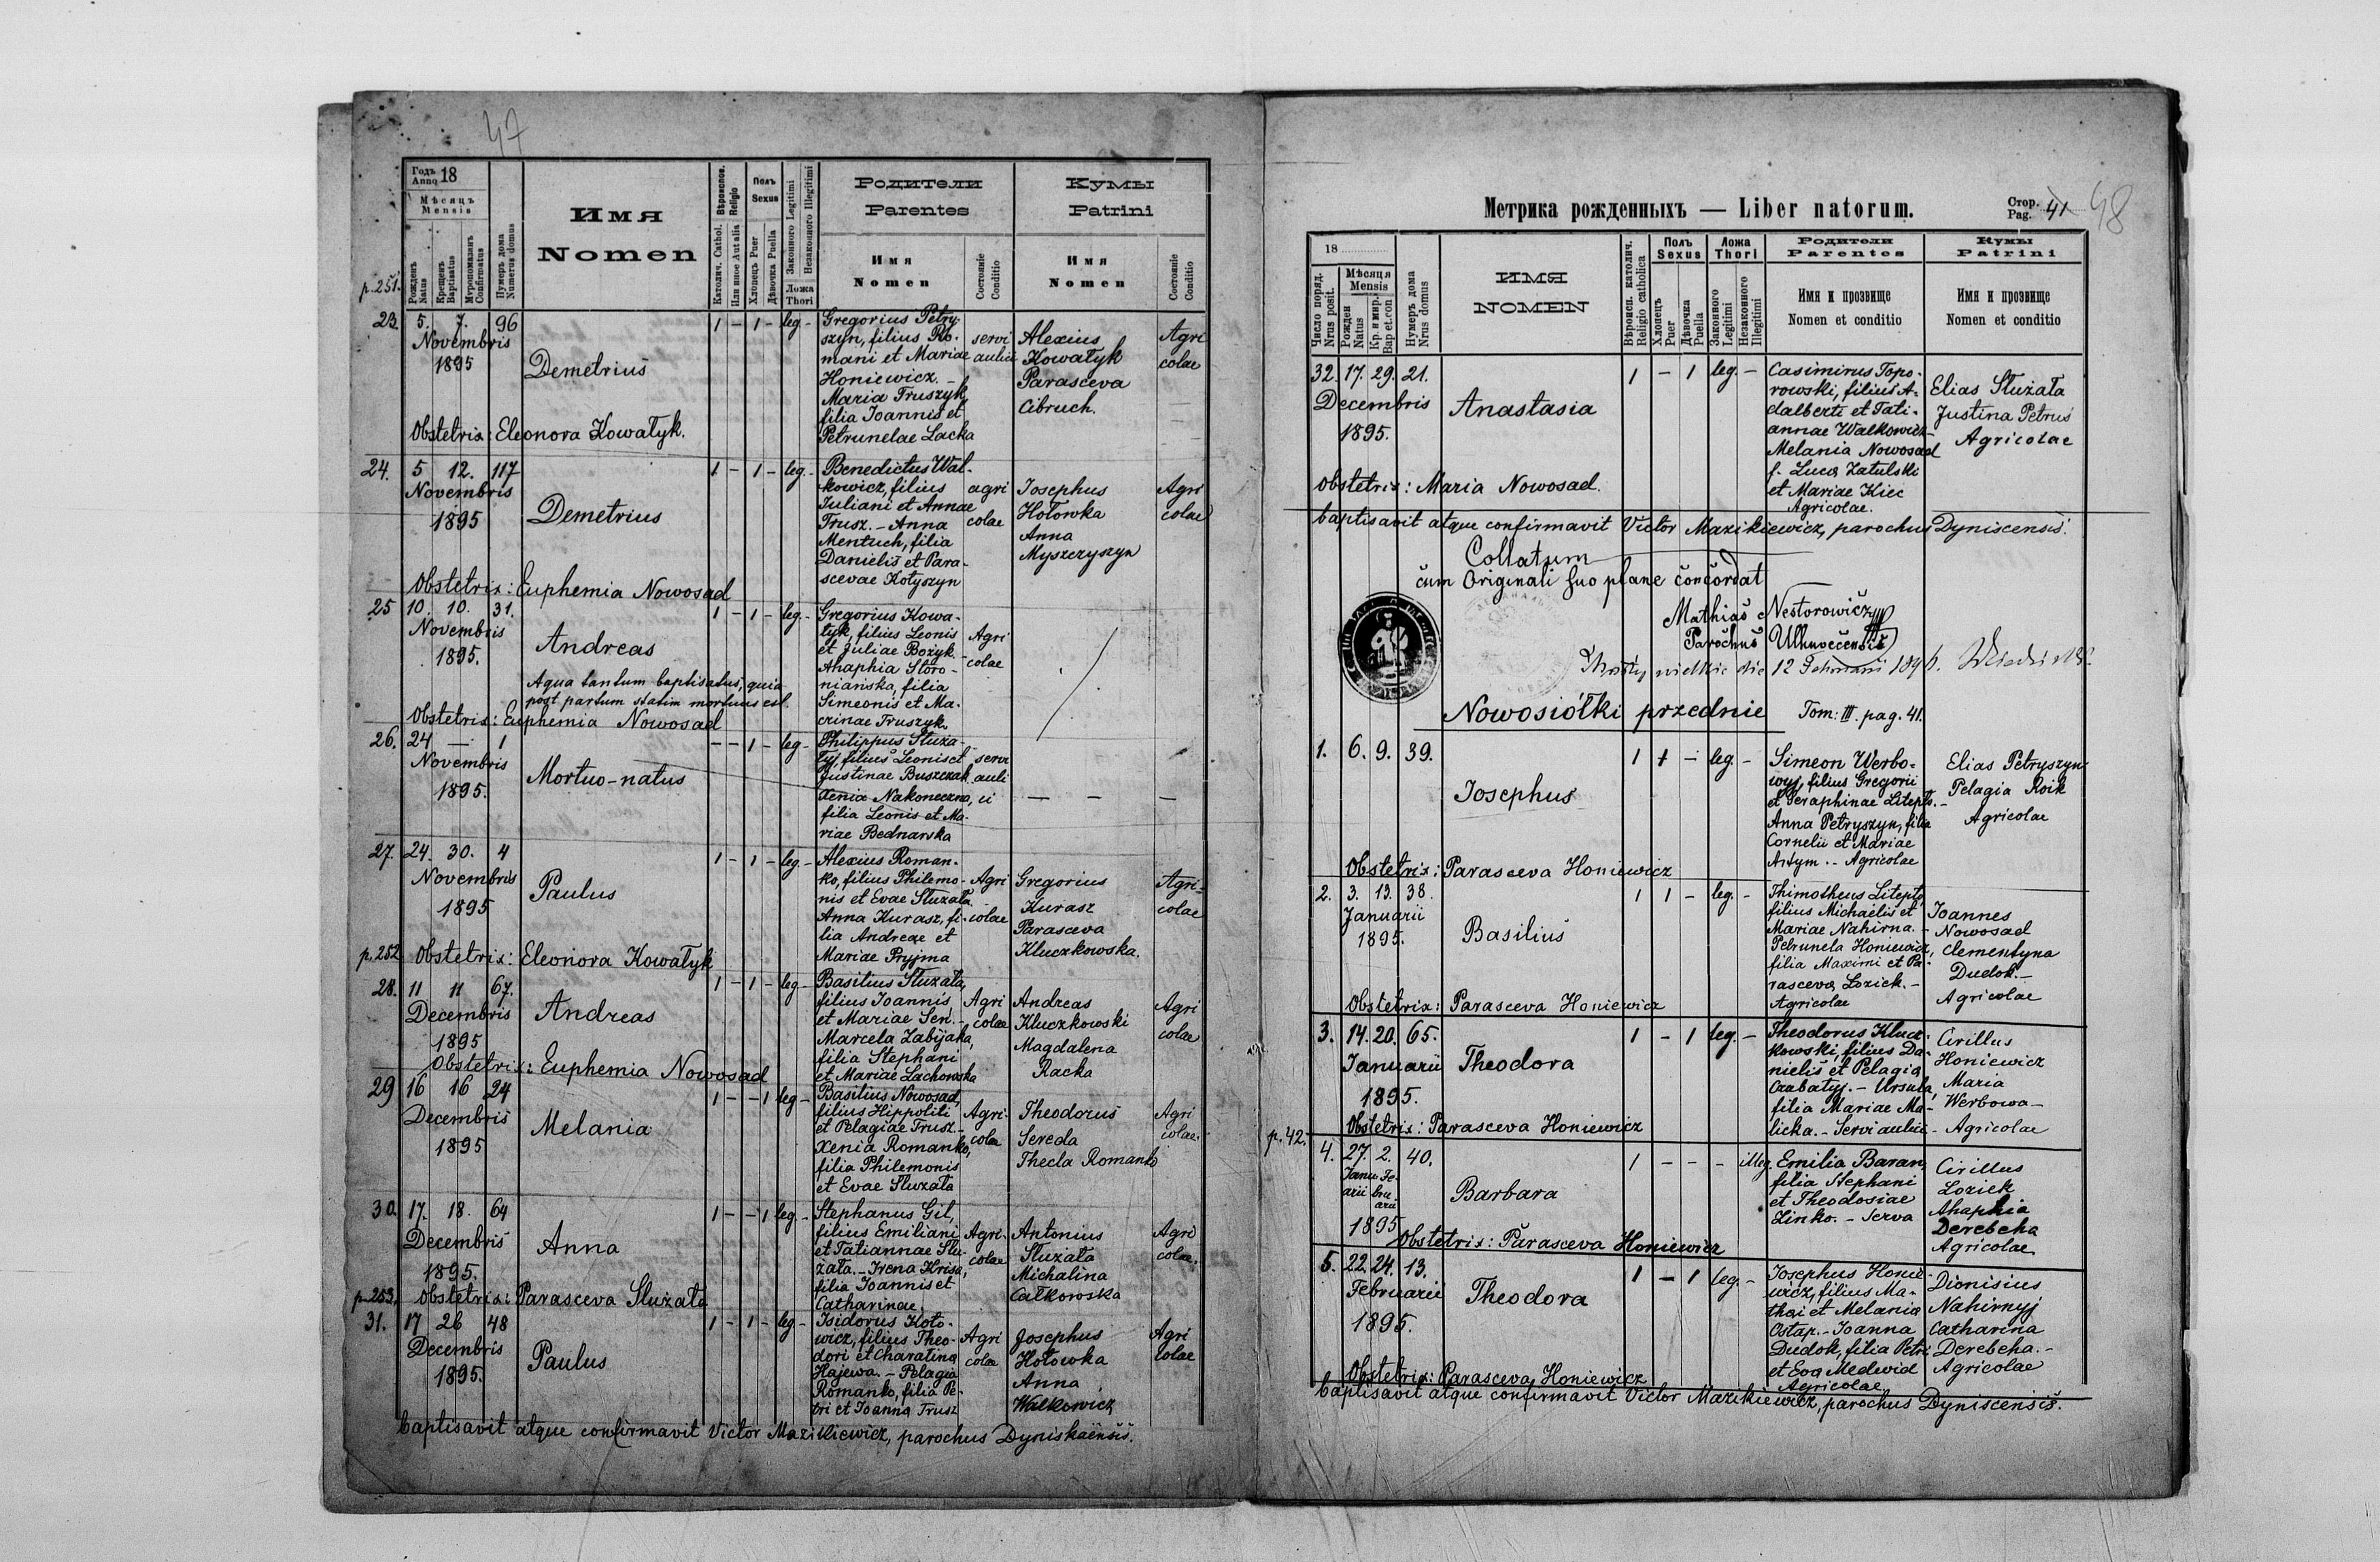 47
Годъ Anno 18
Мѣсяцъ Mensis
Рожденъ Natus
Крещенъ Baptisatus
Мѵропомазанъ Confirmatus
Нумеръ дома Numerus domus
Имя
Nomen
Вѣроиспов. Religio
Католич. Cathol.
Или иное Aut alia
Полъ Sexus
Хлопецъ Puer
Дѣвочка Puella
Законного Legitimi
Незаконного Illegitimi
Ложа Thori
Родители
Parentes
Имя
Nomen
Состояніе Conditio
Кумы
Patrini
Имя
Nomen
Состояніе Conditio
p. 251.
23. 5. 7. 96 1 - 1 - leg - Gregorius Petry-
Novembris szyn, filius Ro- servi Alexius Agri
1895 Demetrius mani et Mariae aulici Kowałyk colae
Honiewicz. - Parasceva
Maria Truszyk, Cibruch.
filia Joannis et
Obstetrix: Eleonora Kowałyk. Petrunelae Lacka
24. 5 12. 117 1 - 1 - leg. - Benedictus Wal-
Novembris kowicz, filius agri Josephus Agri
1895 Demetrius Juliani et Annae colae Hołowka colae
Trusz. - Anna Anna
Mentuch, filia Myszczyszyn
Danielis et Para-
scevae Kotyszyn
Obstetrix: Euphemia Nowosad
25 10. 10. 31. 1 - 1 - leg. - Gregorius Kowa-
Novembris łyk, filius Leonis Agri
1895. Andreas et Juliae Bozyk. - colae
Ahaphia Storo-
Aqua tantum baptisatus, quia niańska, filia
post partum statim mortuus est. Simeonis et Ma-
Obstetrix: Euphemia Nowosad crinae Truszyk
26. 24 — 1 - - 1 - leg - Philippus Słuza-
Novembris łyj, filius Leonis et servi
1895. Mortuo-natus Justinae Buszczak auli
Xenia Nakoneczna, ci — — —
filia Leonis et Ma-
riae Bednarska
27. 24. 30. 4 1 - 1 - leg. - Alexius Roman-
Novembris ko, filius Philemo- Agri Gregorius Agri-
1895 Paulus nis et Evae Słuzała colae Kurasz colae
Anna Kurasz, fi- Parasceva
lia Andreae et Kluczkowska.
Mariae Pryjma
p. 252 Obstetrix: Eleonora Kowałyk
28. 11 11 67. 1 - 1 - leg - Basilius Słuzała,
Decembris filius Joannis Agri Andreas Agri
1895 Andreas et Mariae Sen. - colae Kluczkowski colae
Marcela Zabijaka, Magdalena
filia Stephani Racka
et Mariae Lachowska
Obstetrix: Euphemia Nowosad
29 16 16 24 1 - - 1 leg - Basilius Nowosad,
Decembris filius Hippoliti Agri- Theodorus Agri
1895 Melania et Pelagiae Trusz. - colae Sereda colae.
Xenia Romanko, Thecla Romanko
filia Philemonis
et Evae Słuzała
30. 17. 18. 64 1 - - 1 leg - Stephanus Gil,
Decembris filius Emiliani Agri- Antonius Agri
1895. Anna et Tatiannae Słu- colae Słuzała colae.
zała. - Irena Hrisa, Michalina
filia Joannis et Całkowska
Catharinae.
p. 253. Obstetrix: Parasceva Słuzała
31. 17 26 48 1 - 1 - leg - Isidorus Hoło-
Decembris wicz, filius Theo- Agri Josephus Agri
1895. Paulus dori et Charatina colae Hołowka colae
Hajewa. - Pelagia Anna
Romanko, filia Pe- Walkowicz
tri et Joanna Trusz
baptisavit atque confirmavit Victor Mazikiewicz, parochus Dyniskaënsis.
Метрика рожденныхъ — Liber natorum. Стор. Pag. 41 48
18
Число поряд. Nrus posit.
Мѣсяця Mensis
Рожден Natus
Кр. и мир. Bap et. con
Нумеръ дома Nrus domus
ИМЯ
NOMEN
Вѣроисп. католич. Religio catholica
Полъ Sexus
Хлопецъ Puer
Дѣвочка Puella
Ложа Thori
Законного Legitimi
Незаконного Illegitimi
Родители
Parentes
Имя и прозвище
Nomen et conditio
Кумы
Patrini
Имя и прозвище
Nomen et conditio
32. 17. 29. 21. 1 - 1 leg - Casimirus Topo-
Decembris Anastasia rowski, filius A- Elias Słuzała
1895. dalberti et Tati- Justina Petrus
annae Walkowicz - Agricolae
Melania Nowosad
f. Luca Zatulski
Obstetrix: Maria Nowosad. et Mariae Kiec
Agricolae.
baptisavit atque confirmavit Victor Mazikiewicz, parochus Dyniscensis.
Collatum
cum Originali suo plane concordat
Mathias Nestorowicz
Parochus Uhnovecensis
die 12 1896.
Nowosiółki przednie Tom: III. pag. 41.
1. 6. 9. 39. 1 1 - leg - Simeon Werbo-
wyj, filius Gregorii Elias Petryszyn
Josephus et Seraphinae Litepło. - Pelagia Roik
Anna Petryszyn, filia Agricolae
Cornelii et Mariae
Artym. - Agricolae
Obstetrix: Parasceva Honiewicz
2. 3. 13. 38. 1 1 - leg. - Thimotheus Litepło,
Januarii filius Michaelis et Joannes
1895. Basilius Mariae Nahirna. - Nowosad
Petrunela Honiewicz, Clementyna
filia Maximi et Pa- Dudok. -
rasceva Lozick. - Agricolae
Obstetrix: Parasceva Honiewicz Agricolae
3. 14. 20. 65. 1 - 1 leg. - Theodorus Klucz- Cirillus
Januarii Theodora kowski, filius Da- Honiewicz
nielis et Pelagia Maria
1895. Czabatyj. - Ursula, Werbowa -
filia Mariae Ma- Agricolae
Obstetrix: Parasceva Honiewicz licka. - Servi aulici -
p. 42.
4. 27. 2. 40. 1 - - - illeg. Emilia Baran, Cirillus
Januarii Februarii filia Stephani Lozick
Barbara et Theodosiae Ahaphia
1895 Linko. - Serva Derebcha
Obstetrix: Parasceva Honiewicz Agricolae
5. 22. 24. 13. 1 - 1 leg. - Josephus Honie- Dionisius
Februarii Theodora wicz, filius Ma- Nahirnyj
1895. thei et Melania Catharina
Ostap. - Joanna Derebcha. -
Dudok, filia Petri Agricolae
et Eva Medwid
Obstetrix: Parasceva Honiewicz Agricolae
baptisavit atque confirmavit Victor Mazikiewicz, parochus Dyniscensis.